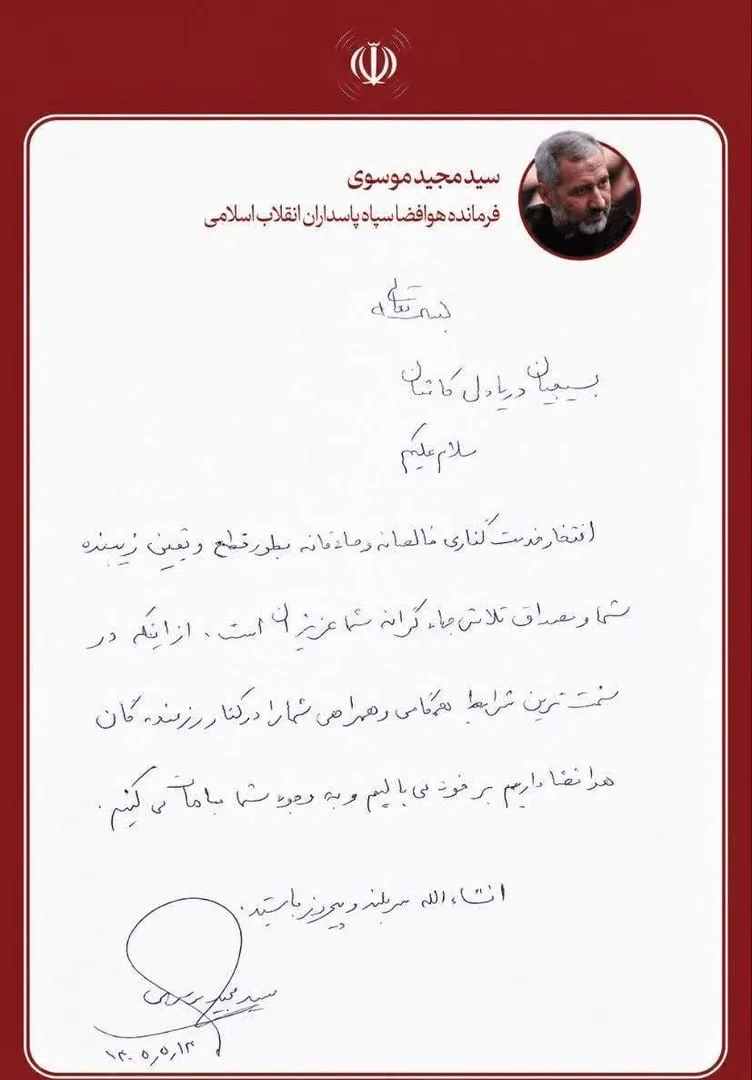 سید مجید موسوی
فرمانده هوافضا سپاه پاسداران انقلاب اسلامی
بسمه تعالی
بسیجیان دریادل کاشان
سلام علیکم
افتخار خدمت گذاری خالصانه و صادقانه بطور قطع و یقین زیبنده
شما و مصداق تلاش جهادگرانه شما عزیزان است. از اینکه در
سخت ترین شرایط همگامی و همراهی شما را در کنار رزمندگان
هوافضا داریم بر خود می بالیم و به وجود شما مباهات می کنیم.
انشاءالله سربلند و پیروز باشید.
سید مجید موسوی
۱۴۰۵٫۵٫۱۳